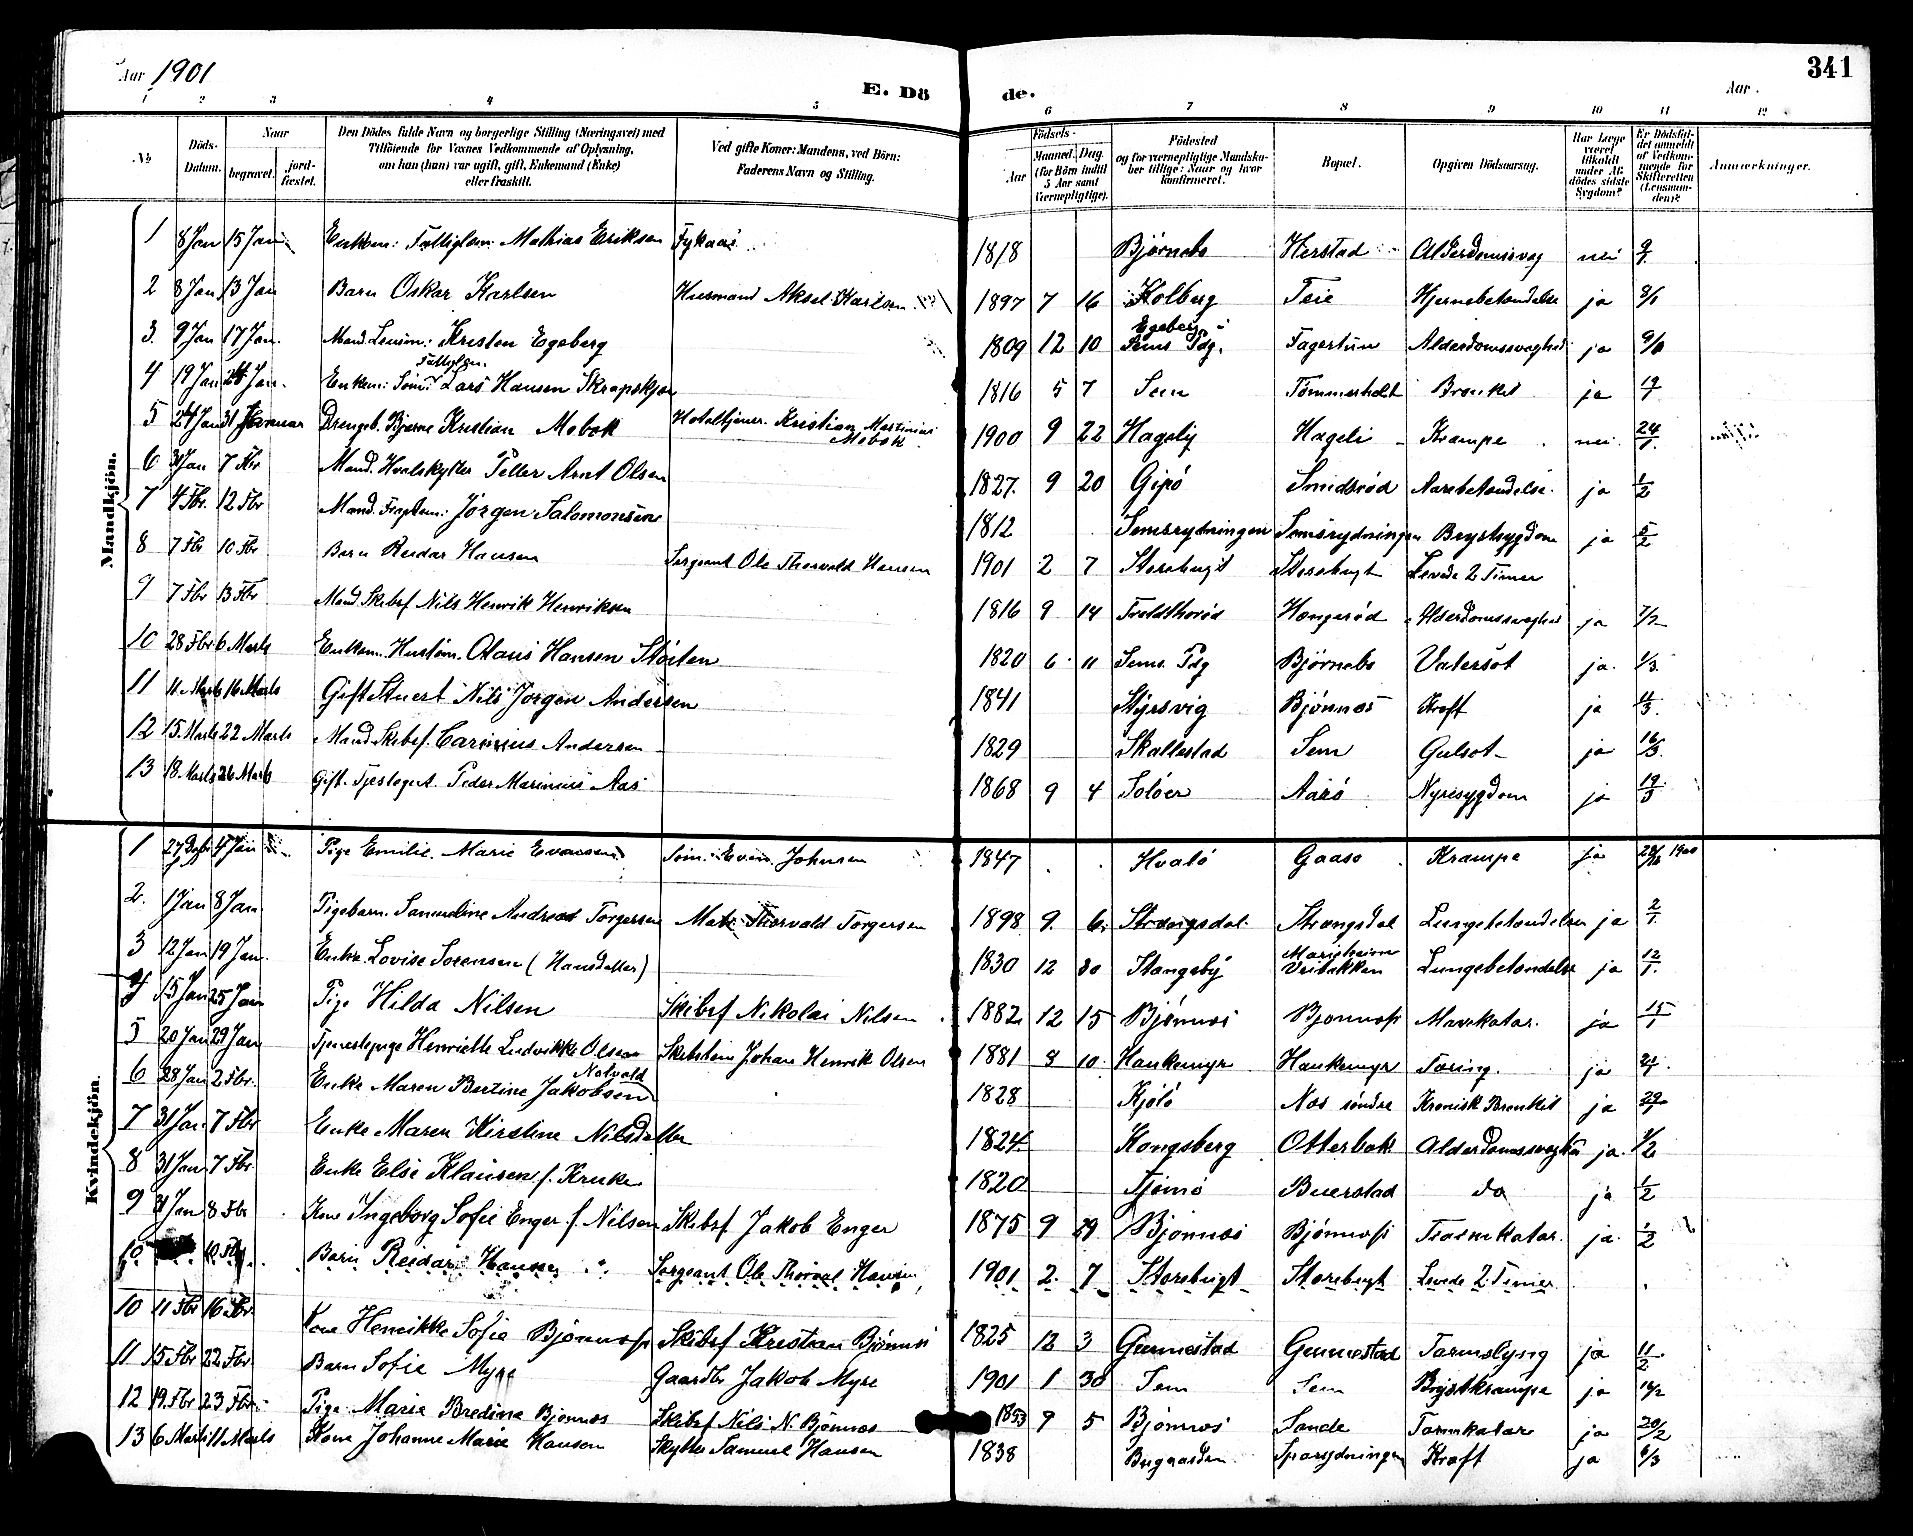 Aar 1901
E. Dö de.
341
Aar
1 2 3 4 5 6 7 8 9 10 11 12
No
Döds-Datum.
Naar
begravet.
jord-fæstet.
Den Dödes fulde Navn og borgerlige Stilling (Næringsvei) med
Tilföiende for Voxnes Vedkommende af Oplysning,
om han (hun) var ugift, gift, Enkemand (Enke)
eller fraskilt.
Ved gifte Koner: Mandens, ved Börn:
Faderens Navn og Stilling.
Födsels-
Aar
Maaned. Dag
(for Börn indtil
5 Aar samt
Værnepligtige).
Födested
og for værnepligtige Mandska-
ber tillige: Naar og hvor
konfirmeret.
Bopæl.
Opgiven Dödsaarsag.
Har Læge
været
tilkaldt
under Af-
dödes sidste
Sygdom?
Er Dödsfal-
det anmeldt
af Vedkom-
mende for
Skifteretten
(Lensman-
den)?
Anmærkninger.
Mandkjön.
1 8 Jan 15 Jan Enkem: Fattiglem Mathias Eriksen Fykaas 1818 Bjørnebo Herstad Alderdomssvag nei 9/1
2 8 Jan 13 Jan Barn Oskar Karlsen Husmand Aksel Karlsen 1897 7 16 Kolberg Teie Hjernebetændelse ja 8/1
3. 9 Jan 17 Jan. Mand. Kristen Egeberg 1809 12 10 Egeberg i Sems Pdg. Fagertun Alderdomssvaghed ja
4 19 Jan 24 Jan. Enkem: Søm: Fattiglem. Lars Hansen Skrapskjær 1816 5 7 Sem Tømmerholt Bronkit ja
5 24 Jan 31 Januar Drengeb. Bjarne Kristian Mobok Hoteltjener Kristian Martinius Mobok 1900 9 22 Hageby Hageli Krampe nei 24/1
6 31 Jan 7 Fbr Mand. Hvalskytter Petter Arnt Olsen 1827. 9 20 Gipø Smidsrød Aarebetændelse. ja 1/2
7 4 Fbr. 12 Fbr Mand. Jørgen Salomonsen 1812 Semsrydningen Semsrydningen Brystsygdom ja 5/2
8 7 Fbr 10 Fbr Barn Reidar Hansen Sergeant Ole Thorvald Hansen 1901 2 7 Storebugt Storebugt Levede 2 Timer
9 7 Fbr 13 Fbr Mand Skibsf Nils Henrik Henriksen 1816 9 14 Alderdomssvaghed ja 7/2
10 28 Fbr 6 Marts Enkem. Olaus Hansen Støiten 1820 6 11 Sems Pdg Bjørnebo Vatersot ja. 1/3
11 11 Marts 16 Marts Gift Stuert Nils Jørgen Andersen 1841 Styrsvig Bjønnes Kræft ja
12 15. Marts 22 Marts Mand Skibsf. Carinius Andersen 1829 Skallestad Sem Gulsot ja 16/3
13 18 Marts 26 Marts Gift. Peder Marinius Aas 1868 9 4 Soløer Aarø Nyresygdom ja 19/3
Kvindekjön.
1 27 4 Jan Pige Emilie Marie Evensen Søm: Even Johnsen 1847 Hvalø Gaasø Krampe ja 1900
2. 1 Jan 8 Jan. Pigebarn. Samueline Andrea Torgersen Matr Thorvald Torgersen 1898 9. 6. Strængsdal Strængsdal Lungebetændelse ja 2/1
3 12 Jan 19 Jan. Enke. Lovise Sørensen (Hansdatter) 1830 12 30 Stangeby Marieheim Lungebetændelse ja 12/1
4 15 Jan 25 Jan Pige Hilda Nilsen Skibsf Nikolai Nilsen 1882 12 15 Bjønnes Bjønnes Mavekatar. ja 15/1
5 20 Jan 29 Jan Tjenestepige Henriette Ludvikke Olsen Johan Henrik Olsen 1881 8 10 Haukemyr Haukemyr Tæring. ja
6 28 Jan 2 Fbr. Enke Maren Bertine Jakobsen Nøtvold 1828 Kjølø Næs søndre Kronisk Bronkit ja 29/1
7 31 Jan 7 Fbr Enke Maren Kirstine Nilsdatter 1824 Kongsberg Otterbæk Alderdomssvaghed ja. 1/2
8 31 Jan 7 Fbr. Enke Else Klausen f. Kruke 1820 Tjømø Buerstad do ja 1/2
9 31 Jan 8 Fbr Kone Ingeborg Sofie Enger f. Nilsen Skibsf Jakob Enger 1875 9 29 Bjønnes Bjønnes Tarmkatar. ja. 1/2
10 10 Fbr. Barn Reidar Hansen Sergeant Ole Thorval Hansen 1901 2. 7 Storebugt Storebugt Levede 2 Timer
10 11 Fbr 16 Fbr. Kone Henrikke Sofie Bjønnes Skibsf Kristian Bjønnes 1825 12 3 Gunnestad Gunnestad Tarmslyng ja 11/2
11 15 Fbr 22 Fbr Barn Sofie Myre Gaardbr Jakob Myre 1901 1 30 Sem Sem Brystkrampe ja
12 19. Fbr 23 Fbr. Pige Marie Bredine Bjønnes Skibsf Nils N. Bjønnes 1853 9 5 Bjønnes Sande Tarmkatar ja 20/2
13 6 Marts 11 Marts Kone Johanne Marie Hanson Skytter Samuel Hansen 1838 Bugaarden Kræft ja 6/3